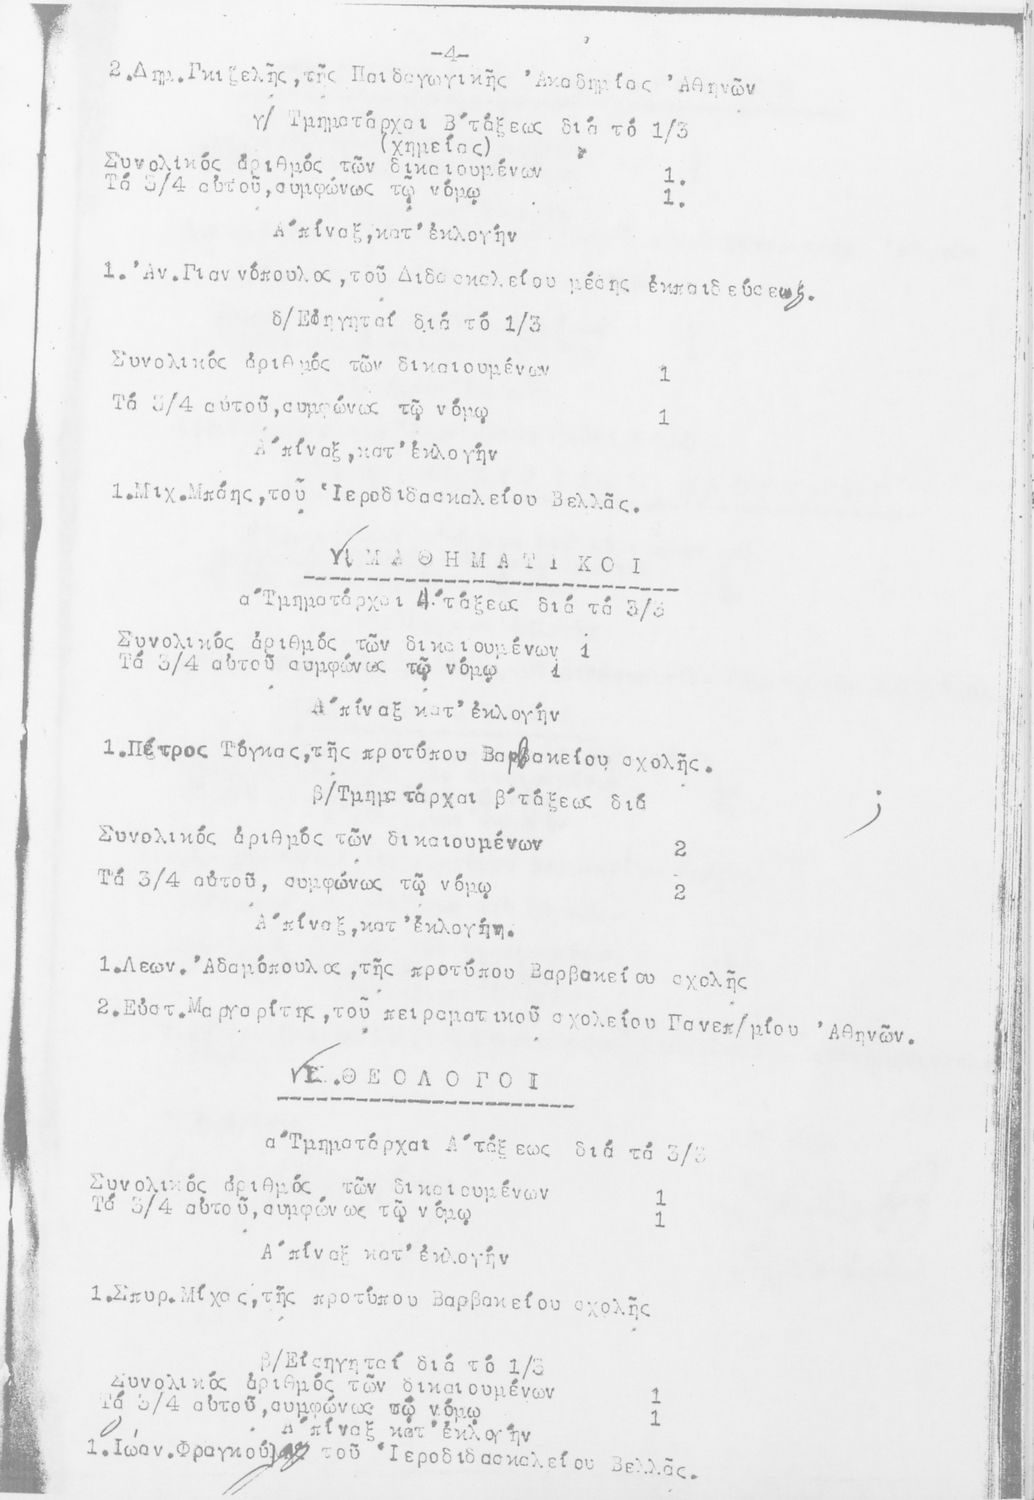 -4-
2.Δημ.Γκιζελῆς,τῆς Παιδαγωγικῆς 'Ακαδημίας 'Αθηνῶν
γ/ Τμηματάρχαι Β΄τάξεως διά τό 1/3
(χημείας)
Συνολικός ἀριθμός τῶν δικαιουμένων 1.
Τά 3/4 αὐτοῦ,συμφώνως τῷ νόμῳ 1.
Α΄πίναξ,κατ'ἐκλογήν
1.'Αν.Γιαννόπουλος,τοῦ Διδασκαλείου μέσης ἐκπαιδεύσεως.
δ/Εἰσηγηταί διά τό 1/3
Συνολικός ἀριθμός τῶν δικαιουμένων 1
Τά 3/4 αὐτοῦ,συμφώνως τῷ νόμῳ 1
Α΄πίναξ,κατ'ἐκλογήν
1.Μιχ.Μπάης,τοῦ 'Ιεροδιδασκαλείου Βελλᾶς.
ΜΑΘΗΜΑΤΙΚΟΙ
α΄Τμηματάρχαι Α΄τάξεως διά τά 3/3
Συνολικός ἀριθμός τῶν δικαιουμένων 1
Τά 3/4 αὐτοῦ συμφώνως τῷ νόμῳ 1
Α΄πίναξ κατ'ἐκλογήν
1.Πέτρος Τόγκας,τῆς προτύπου Βαρβακείου σχολῆς.
β/Τμηματάρχαι β΄τάξεως διά
Συνολικός ἀριθμός τῶν δικαιουμένων 2
Τά 3/4 αὐτοῦ, συμφώνως τῷ νόμῳ 2
Α΄πίναξ,κατ'ἐκλογήν.
1.Λεων.'Αδαμόπουλος,τῆς προτύπου Βαρβακείου σχολῆς
2.Εὐστ.Μαργαρίτης,τοῦ πειραματικοῦ σχολείου Πανεπ/μίου 'Αθηνῶν.
ΘΕΟΛΟΓΟΙ
α΄Τμηματάρχαι Α΄τάξεως διά τά 3/3
Συνολικός ἀριθμός τῶν δικαιουμένων 1
Τά 3/4 αὐτοῦ,συμφώνως τῷ νόμῳ 1
Α΄πίναξ κατ'ἐκλογήν
1.Σπυρ.Μίχας,τῆς προτύπου Βαρβακείου σχολῆς
β/Εἰσηγηταί διά τό 1/3
Συνολικός ἀριθμός τῶν δικαιουμένων 1
Τά 3/4 αὐτοῦ,συμφώνως τῷ νόμῳ 1
Α΄πίναξ κατ'ἐκλογήν
1.Ἰωάν. τοῦ 'Ιεροδιδασκαλείου Βελλᾶς.